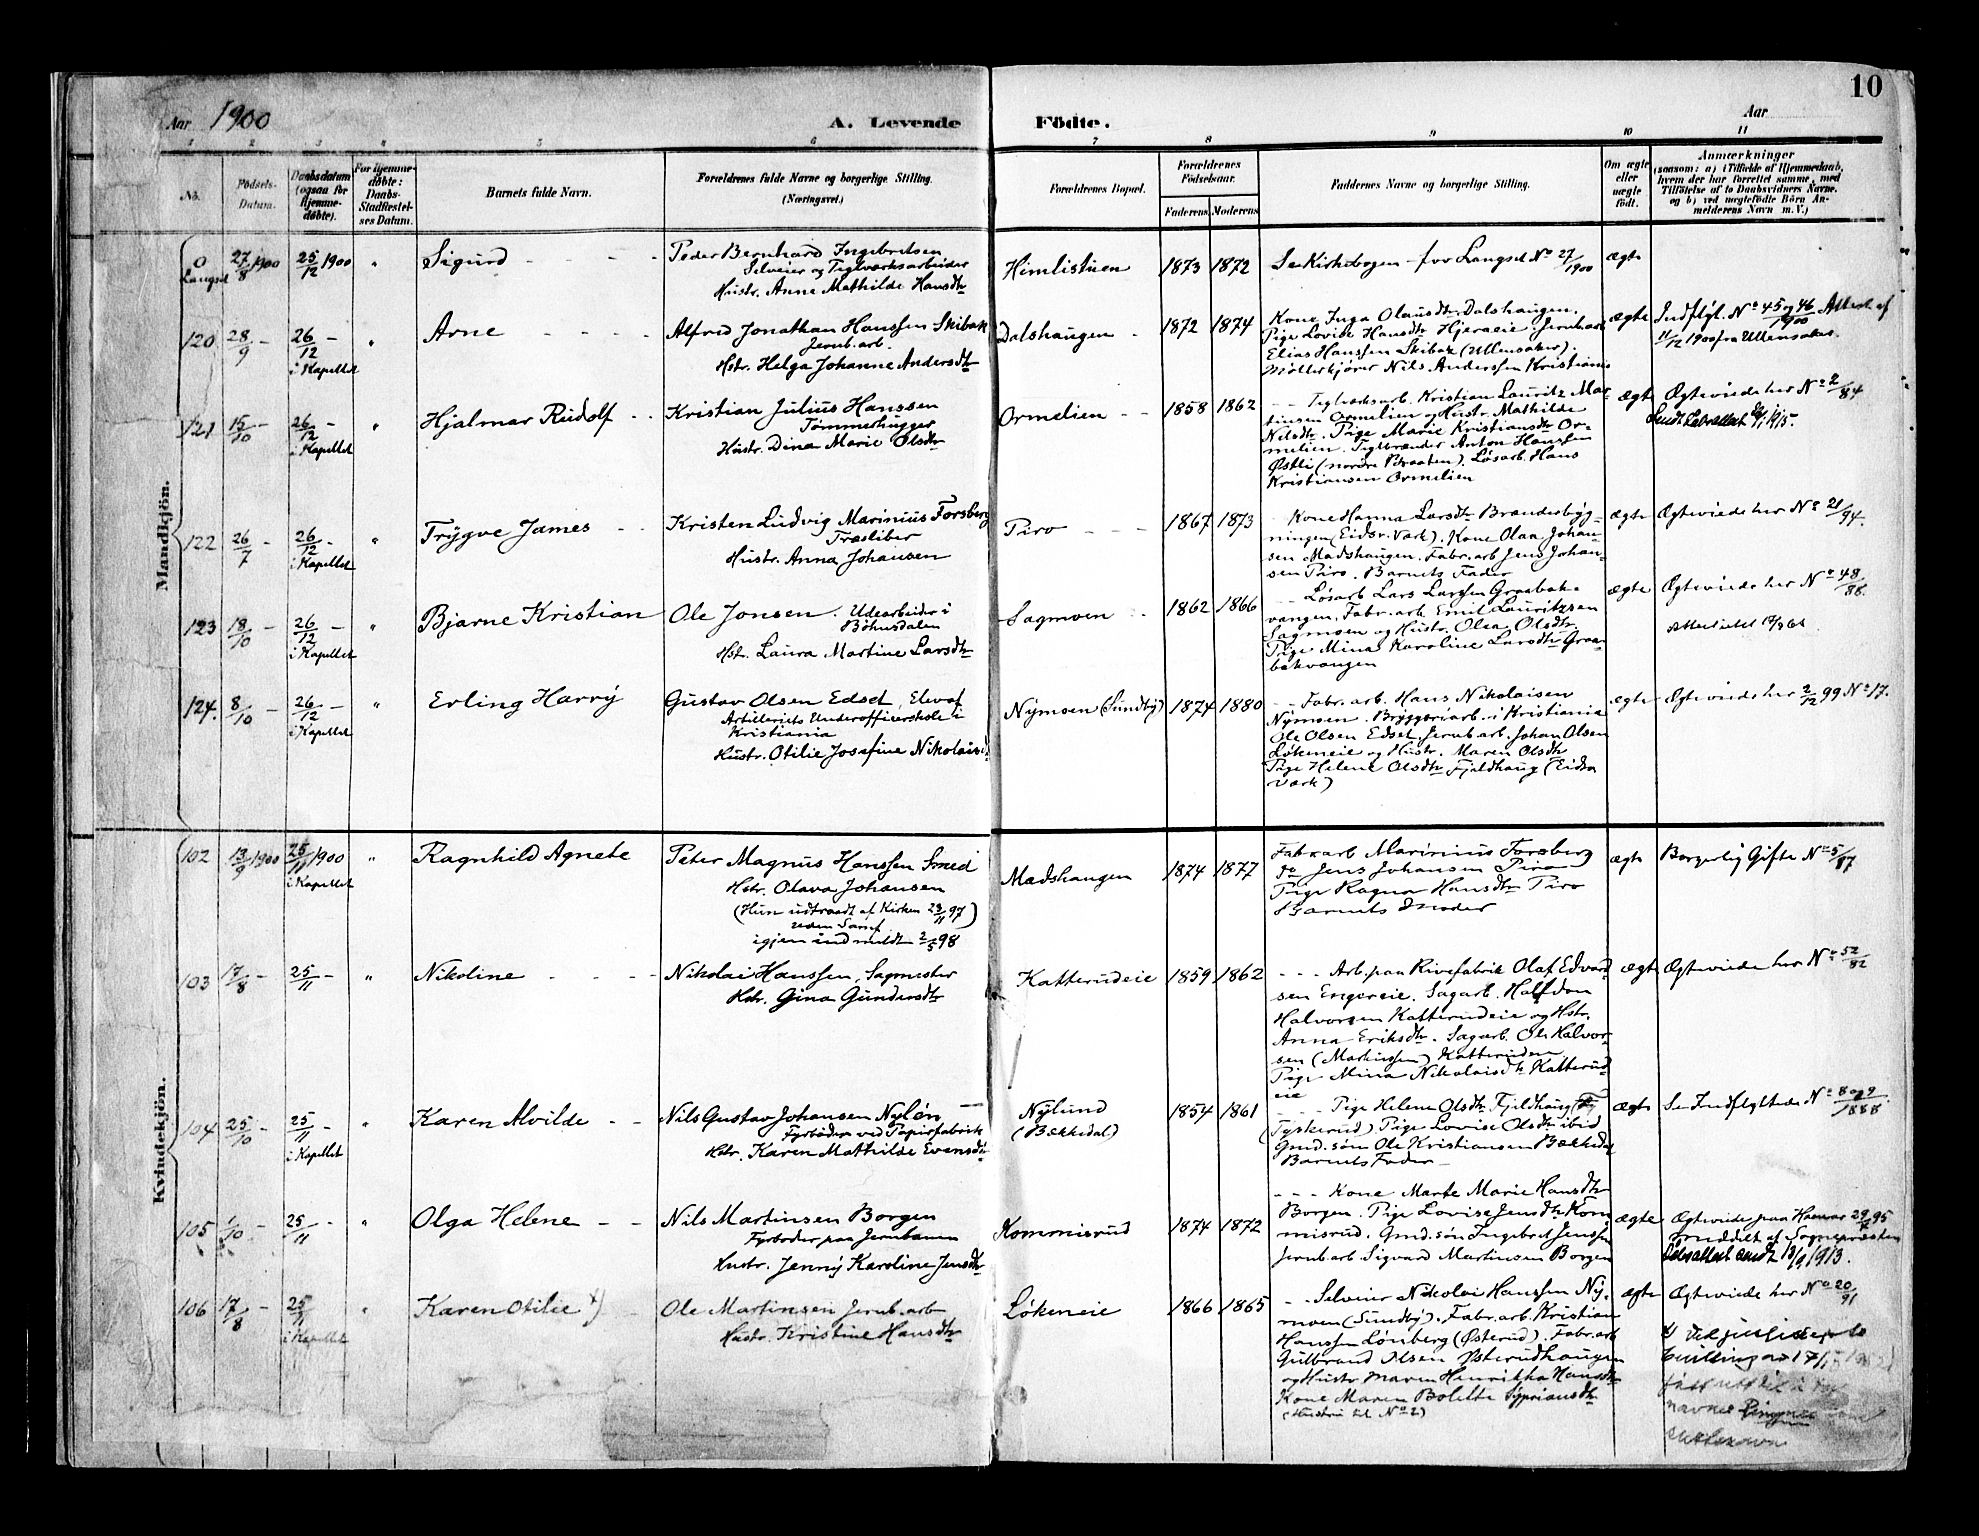 10
Aar 1900
A. Levende
Födte.
Aar
1 2 3 4 5 6 7 8 9 10 11
No.
Födsels-
Datum.
Daabsdatum
(ogsaa for
Hjemme-
döbte).
For Hjemme-
döbte:
Daabs-
Stadfæstel-
ses Datum.
Barnets fulde Navn.
Forældrenes fulde Navne og borgerlige Stilling.
(Næringsvei.)
Forældrenes Bopæl.
Forældrenes
Födselsaar.
Faderens. Moderens.
Faddernes Navne og borgerlige Stilling.
Om ægte
eller
uægte
födt.
Anmærkninger
(saasom: a) i Tilfælde af Hjemmedaab,
hvem der har forrettet samme, med
Tilföielse af to Daabsvidners Navne.
og b) ved uægtefödte Börn An-
melderens Navn m. V.)
Mandkjön.
0
Langset
27/8 1900
25/12 1900
"
Sigurd
Peder Bernhard Ingebretsen
Selveier og Teglværksarbeider
Hustr. Anne Mathilde Hansdtr
Himlistuen
1873 1872
Se Kirkebogen for Langset No 27/1900
ægte
120
28/9 –
26/12 –
i Kapellet
"
Arne
Alfred Jonathan Hanssen Skibak
Jernb.arb.
Hstr. Helga Johanne Andersdtr
Dalshaugen
1872 1874
Kone Inga Olausdtr Dalshaugen.
Pige Lovise Hansdtr Hjeraeie Jernbarb
Elias Hanssen Skibak (Ullensaker).
Møllerkjører Nils Anderssen Kristiania
ægte
Indflyt. No 45 og 46/1900 Attest af
11/12 1900 fra Ullensaker.
121
15/10 –
26/12 –
i Kapellet
"
Hjalmar Rudolf
Kristian Julius Hanssen
Tømmerhugger
Hustr. Dina Marie Olsdtr
Ormelien
1858 1862
Teglværksarb. Kristian Lauritz Mar-
tinsen Ormelien og Hustr. Mathilde
Nilsdtr. Pige Marie Kristiansdtr Or-
melien. Teglbrænder Anton Hanssen
Østli (nordre Braaten). Løsarb. Hans
Kristiansen Ormelien
ægte
Ægteviede her No 2/84
122
26/7 –
26/12 –
i Kapellet
"
Trygve James
Kristen Ludvig Marinius Forsberg
Træsliber
Hustr. Anna Johansen
Piro
1867 1873
Kone Hanna Larsdtr Brandersbyg-
ningen (Eidsv. Værk). Kone Olaa Johan-
sen Madshaugen. Fabr.arb Jens Johan-
sen Piro. Barnets Fader
ægte
Ægteviede her No 21/94.
123
18/10 –
26/12 –
i Kapellet
"
Bjarne Kristian
Ole Jonsen. Udearbeider i
Bøhnsdalen
Hst. Laura Martine Larsdtr
Sagmoen
1862 1866
Løsarb Lars Larssen Graabak-
vangen. Fabr.arb. Emil Lauritzsen
Sagmoen og Hustr. Olea Olsdtr.
Pige Mina Karoline Larsdtr Graa-
bakvangen
ægte
Ægteviede her No 48/88.
124.
8/10 –
26/12 –
i Kapellet
"
Erling Harry
Gustav Olsen Edset, Elev af
Artilleriets Underofficerskole i
Kristiania
Hustr. Otilie Josefine Nikolaisd
Nymoen (Sundby)
1874 1880
Fabr.arb. Hans Nikolaisen
Nymoen. Bryggeriarb. i Kristiania
Ole Olsen Edset. Jernb.arb. Johan Olsen
Løkeneie og Hustr. Maren Olsdtr
Pige Helene Olsdtr Fjeldhaug (Eidsv
Værk)
ægte
Ægteviede her 2/12 99 No 17.
Kvindekjön.
102
13/9 1900
25/11 1900
i Kapellet
"
Ragnhild Agnete
Peter Magnus Hanssen Smed
Hstr. Olava Johansen
(Hun udtraadt af Kirken 23/11 97)
igjen indmeldt 2/5 98
Madshaugen
1874 1877
Fabr.arb Marinius Forsberg
Do Jens Johansen Piro
Pige Ragna Hansdtr Piro
Barnets Moder
ægte
Borgerlig Gifte No 5/97
103
17/8 –
25/11 –
"
Nikoline
Nikolai Hanssen, Sagmester
Hstr. Gina Gundersdtr
Katterudeie
1859 1862
Arb. paa Rivefabrik Olaf Edvard
sen Engereie. Sagarb. Halfdan
Halvorsen Katterudeie og Hstr.
Anna Eriksdtr. Sagarb. Ole Halvor-
sen (Martinssen) Katterudeie.
Pige Mina Nikolaisdtr Katterud
eie
ægte
Ægteviede her No 52/82
104
25/10 –
25/11 –
i Kapellet
"
Karen Alvilde
Nils Gustav Johansen Nylén
Fyrbøder ved Papirfabrik
Hstr. Karen Mathilde Evensdtr
Nylund
(Bækkedal)
1854 1861
Pige Helene Olsdtr Fjeldhaug
(Tyskerud) Pige Lovise Olsdtr ibid
Gmd.søn Ole Kristiansen Bækkedal
Barnets Fader –
ægte
Se Indflyttede No 8 og 9/1888.
105
1/10 –
25/11 –
"
Olga Helene
Nils Martinsen Borgen
Fyrbøder paa Jernbanen
Hustr. Jenny Karoline Jensdtr
Kommisrud
1874 1872
Kone Marte Marie Hansdtr
Borgen. Pige Lovise Jensdtr Kom
misrud. Gmd.søn Ingebret Jenssen
Jernb.arb Sigvard Martinsen Borgen
ægte
Ægteviede paa Hamar 95
meddelt af Sognepræsten
Daabsattest sendt 13/9 1913.
106
17/8 –
25/11
i Kapellet
"
Karen Otilie x)
Ole Martinsen Jernb.arb
Hustr. Kristine Hansdtr
Løkeneie
1866 1865
Selveier Nikolai Hanssen Ny-
moen (Sundby). Fabr.arb. Kristian
Hanssen Lønberg (Østerud). Fabr.arb
Gulbrand Olsen Østerudhaugen
og Hustr Maren Henrikka Hansdtr
Kone Maren Bolette Sypriansdtr
(Hustru til No 2)
ægte
Ægteviede her No 20/91
x) Ved justisdep.ts
bevilling av 17/